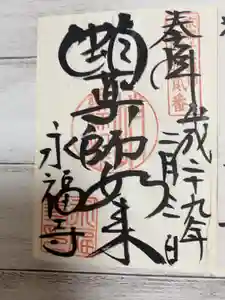 奉拝
平成二十九年
二月三日
薬師如来
永福寺